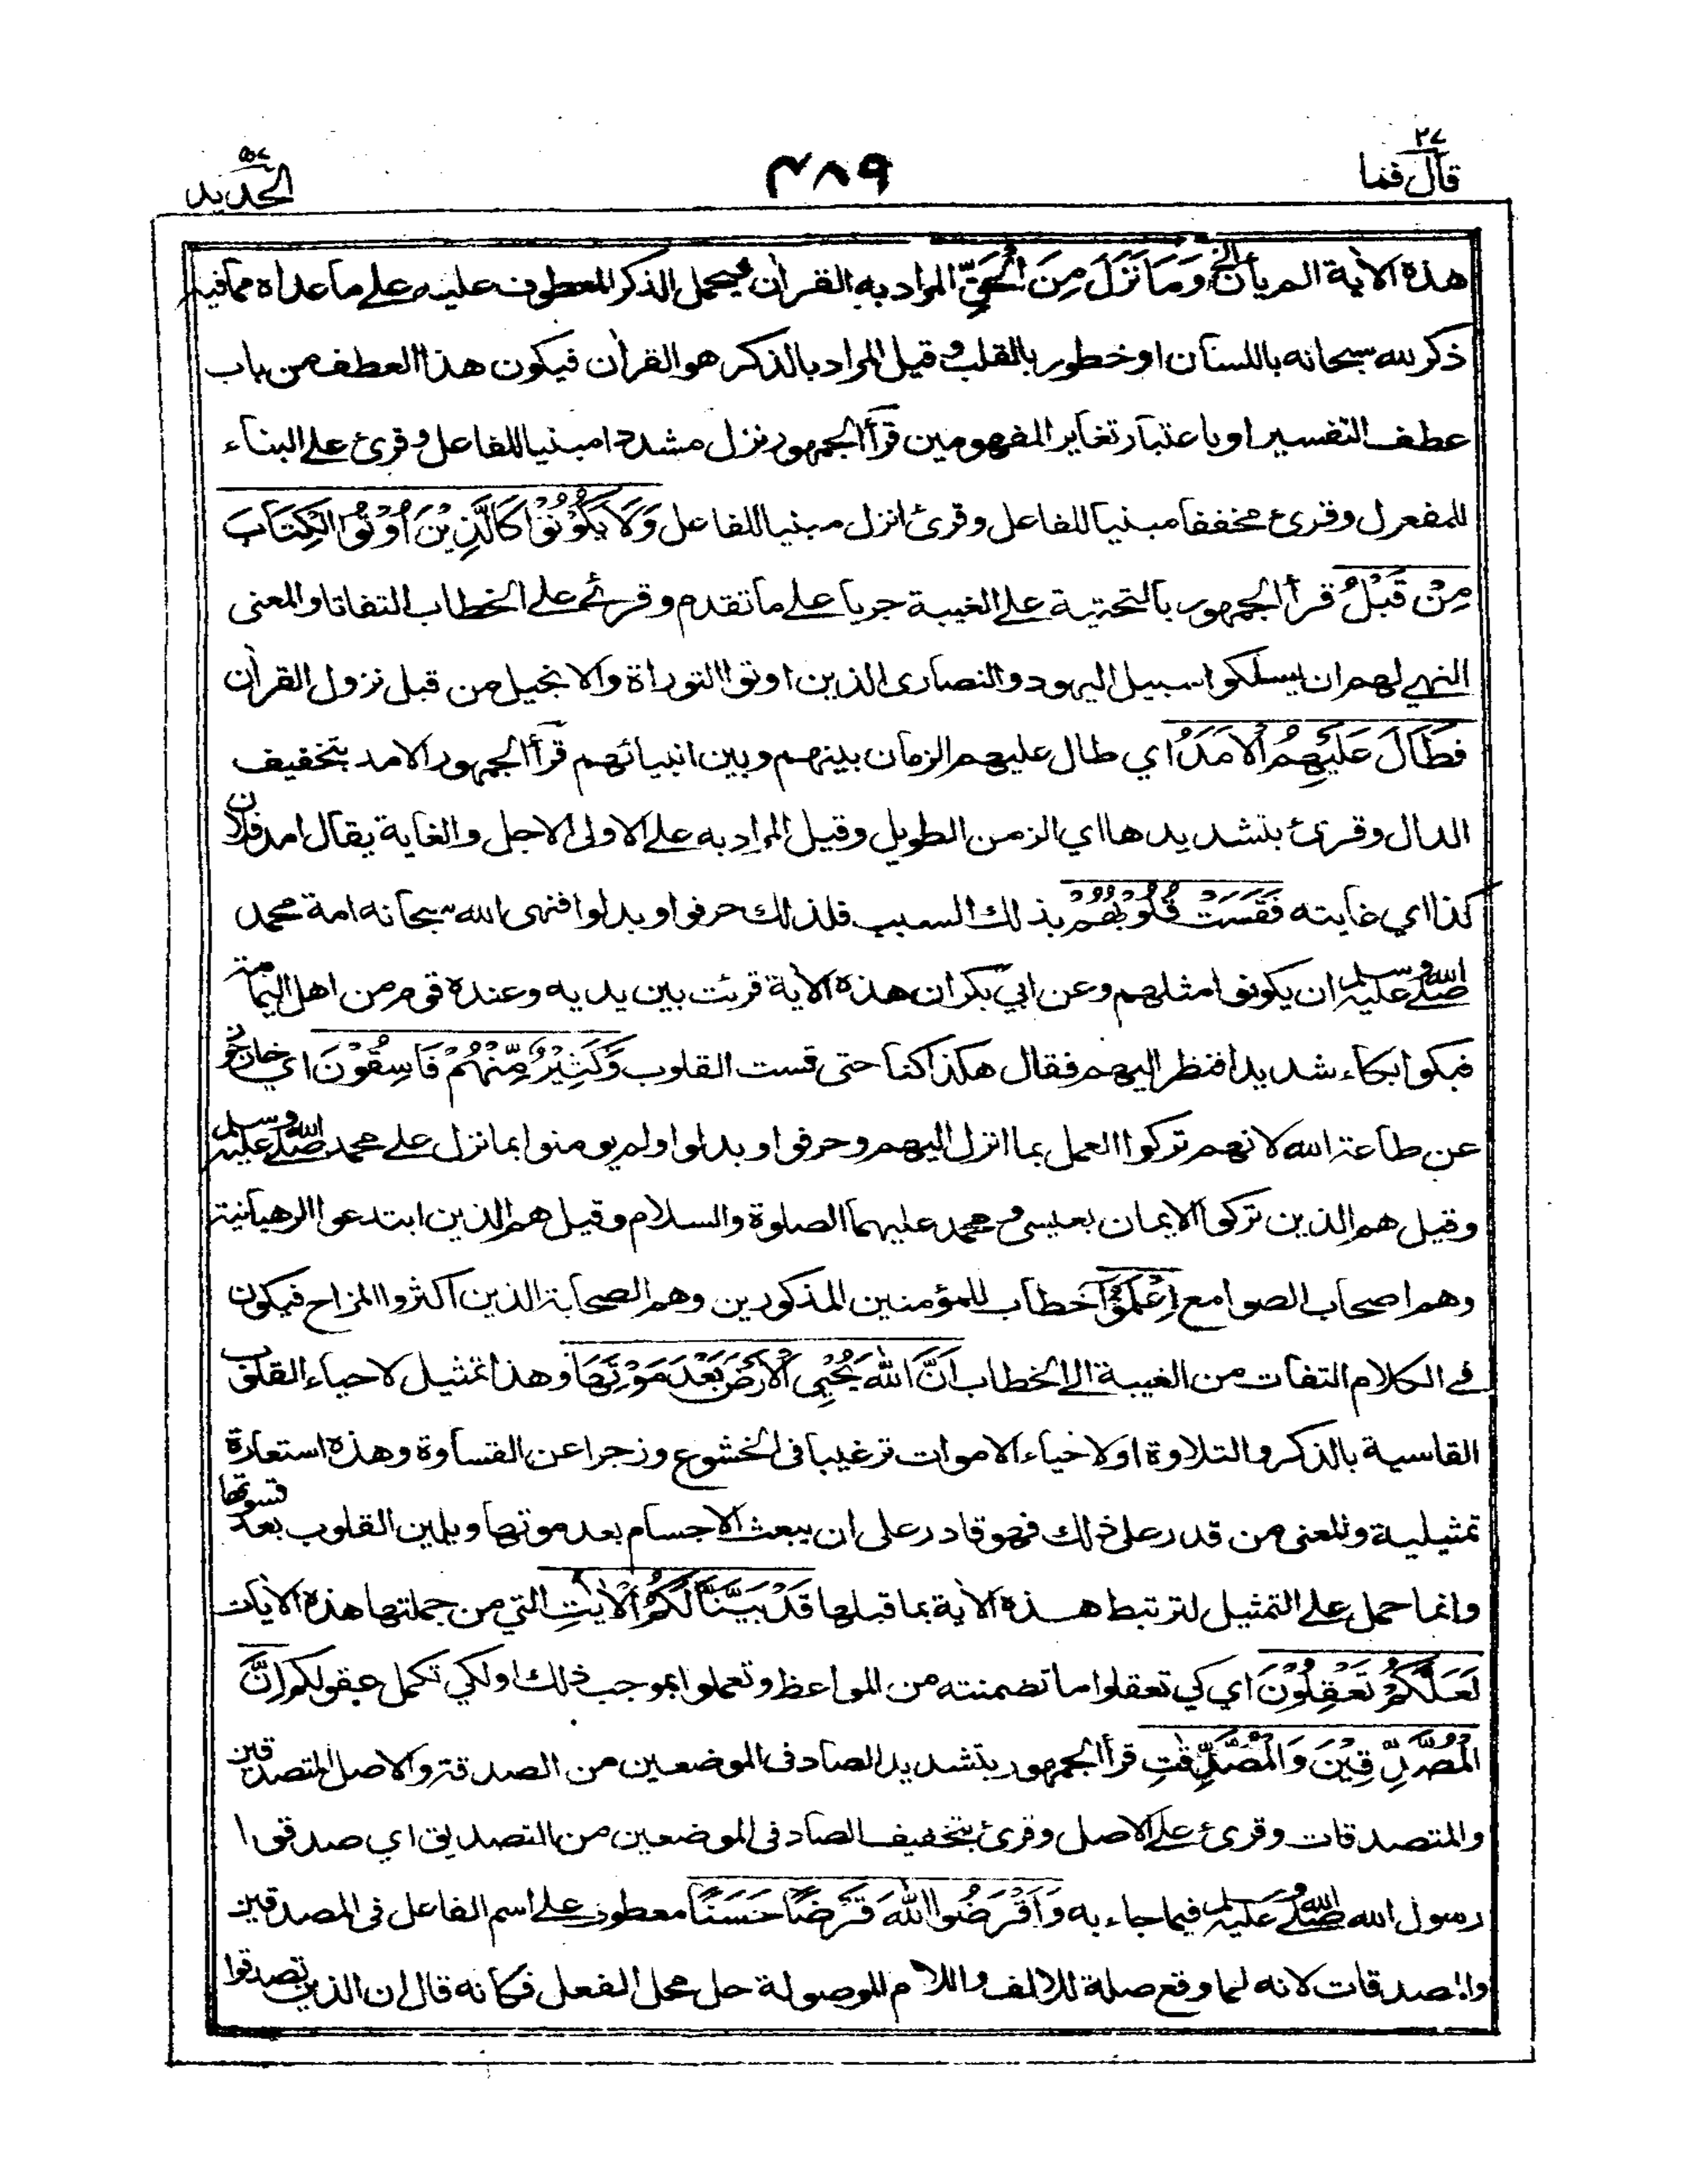 قال فما ٢٧
٤٨٩
الحديد ٥٧
هذه الاٰية الم يأن الخ وَمَا نَزَلَ مِنَ الْحَقِّ المراد به القراٰن فيحمل الذكر المعطوف عليه على ما عداه مما فيه
ذكر لله سبحانه باللسان او خطور بالقلب وقيل المراد بالذكر هو القراٰن فيكون هذا العطف من باب
عطف التفسير او باعتبار تغاير المفهومين قرأ الجمهور نزل مشددا مبنيا للفاعل وقرئ على البناء
للمفعول وقرئ مخففا مبنيا للفاعل وقرئ انزل مبنيا للفاعل وَلَا يَكُوْنُوْا كَالَّذِيْنَ اُوْتُوا الْكِتَابَ
مِنْ قَبْلُ قرأ الجمهور بالتحتية على الغيبة جريا على ما تقدم وقرئ على الخطاب التفاتا والمعنى
النهي لهم ان يسلكوا سبيل اليهود والنصارى الذين اوتوا التوراة والانجيل من قبل نزول القراٰن
فَطَالَ عَلَيْهِمُ الْاَمَدُ اي طال عليهم الزمان بينهم وبين انبيائهم قرأ الجمهور الامد بتخفيف
الدال وقرئ بتشديدها اي الزمن الطويل وقيل المراد به على الاولى الاجل والغاية يقال امد فلان
كذا اي غايته فَقَسَتْ قُلُوْبُهُمْ بذلك السبب فلذلك حرفوا وبدلوا فنهى الله سبحانه امة محمد
صلى الله عليه وسلم ان يكونوا مثلهم وعن ابي بكر ان هذه الاٰية قرئت بين يديه وعنده قوم من اهل اليمامة
فبكوا بكاء شديدا فنظر اليهم فقال هكذا كنا حتى قست القلوب وَكَثِيْرٌ مِّنْهُمْ فَاسِقُوْنَ اي خارجون
عن طاعة الله لانهم تركوا العمل بما انزل اليهم وحرفوا وبدلوا ولم يومنوا بما نزل على محمد صلى الله عليه وسلم
وقيل هم الذين تركوا الايمان بعيسى ومحمد عليهما الصلوة والسلام وقيل هم الذين ابتدعوا الرهبانية
وهم اصحاب الصوامع اِعْلَمُوْٓا خطاب للمؤمنين المذكورين وهم الصحابة الذين اكثروا المزاح فيكون
في الكلام التفات من الغيبة الى الخطاب اَنَّ اللّٰهَ يُحْيِي الْاَرْضَ بَعْدَ مَوْتِهَا وهذا تمثيل لاحياء القلوب
القاسية بالذكر والتلاوة او لاحياء الاموات ترغيبا في الخشوع وزجرا عن القساوة وهذه استعارة
تمثيلية والمعنى من قدر على ذلك فهو قادر على ان يبعث الاجسام بعد موتها ويلين القلوب بعد قسوتها
وانما حمل على التمثيل لترتبط هذه الاٰية بما قبلها قَدْ بَيَّنَّا لَكُمُ الْاٰيٰتِ التي من جملتها هذه الاٰيات
لَعَلَّكُمْ تَعْقِلُوْنَ اي كي تعقلوا ما تضمنته من المواعظ وتعملوا بموجب ذلك او لكي تكمل عقولكم اِنَّ
الْمُصَّدِّقِيْنَ وَالْمُصَّدِّقٰتِ قرأ الجمهور بتشديد الصاد في الموضعين من الصدقة والاصل المتصدقين
والمتصدقات وقرئ على الاصل وقرئ بتخفيف الصاد في الموضعين من التصديق اي صدقوا
رسول الله صلى الله عليه وسلم فيما جاء به وَاَقْرَضُوا اللّٰهَ قَرْضًا حَسَنًا معطوف على اسم الفاعل في المصدقين
والمصدقات لانه لما وقع صلة للالف واللام الموصولة حل محل الفعل فكانه قال ان الذين تصدقوا